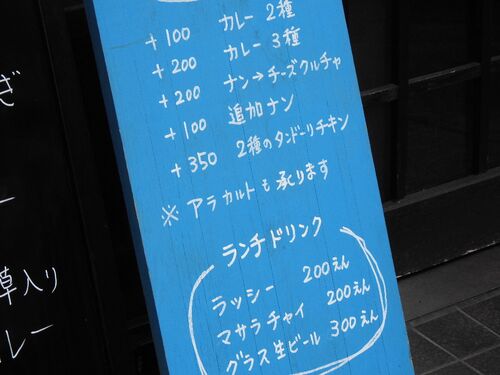 +100 カレー 2種
+200 カレー 3種
+200 ナン→チーズクルチャ
+100 追加ナン
+350 2種のタンドーリチキン
※ アラカルトも承ります
ランチドリンク
ラッシー 200えん
マサラチャイ 200えん
グラス生ビール 300えん
ぎ
草入り
レー